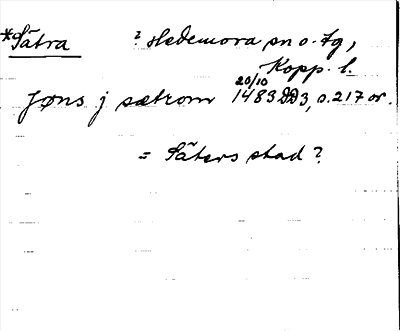 *Sätra ? Hedemora sn o. tg,
Kopp. l.
Jøns j sætrom 20/10 1483 DD3, o. 217 or.
= Säters stad ?